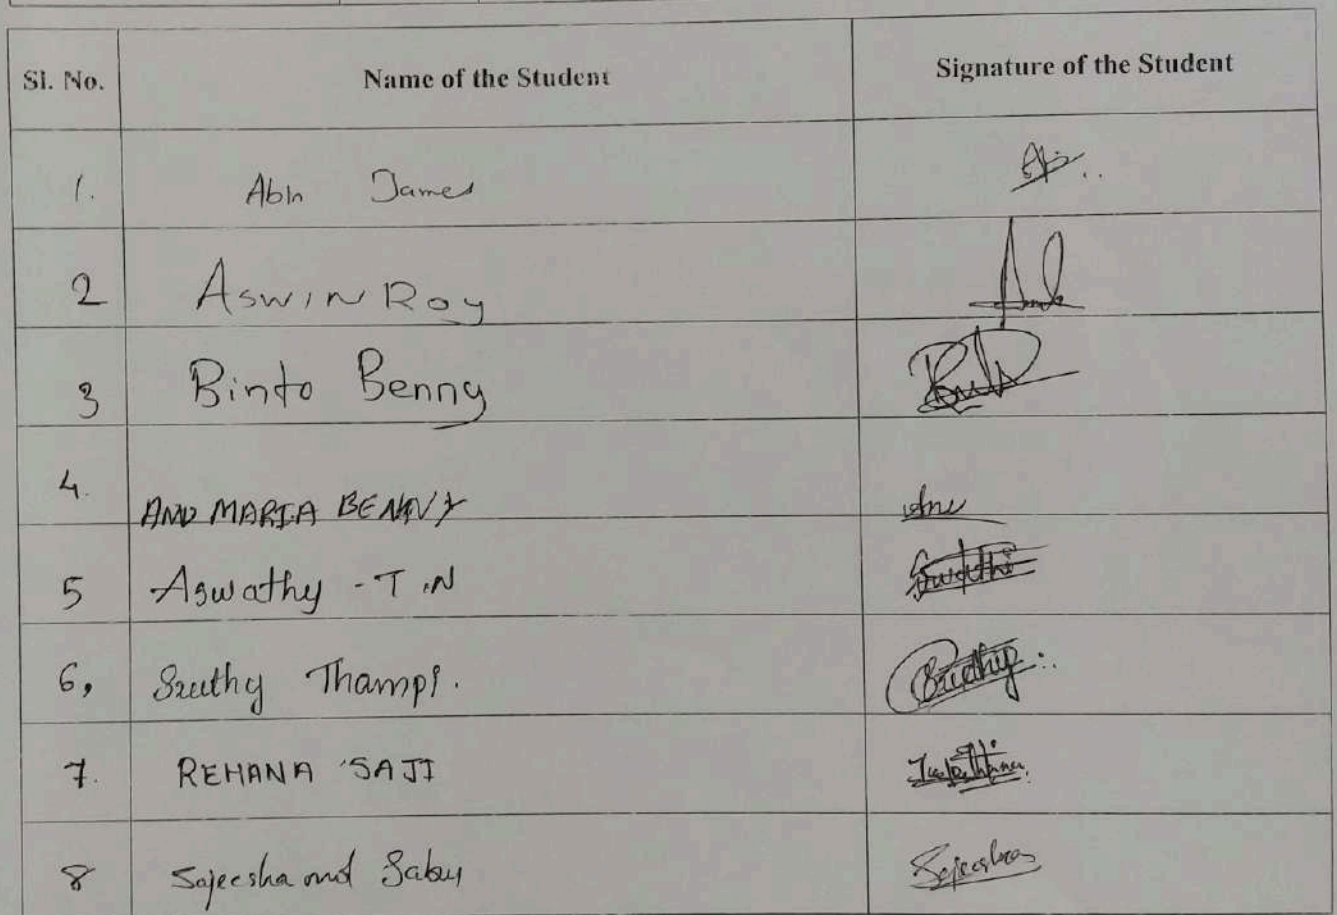 Sl. No. Name of the Student Signature of the Student
1. Abin James
2 Aswin Roy
3 Binto Benny
4. ANN MARIA BENNY
5 Aswathy - T.N Swathi
6, Sruthy Thampi. Sruthy
7. REHANA SAJI
8 Sajeesha Sabu Sajeesha